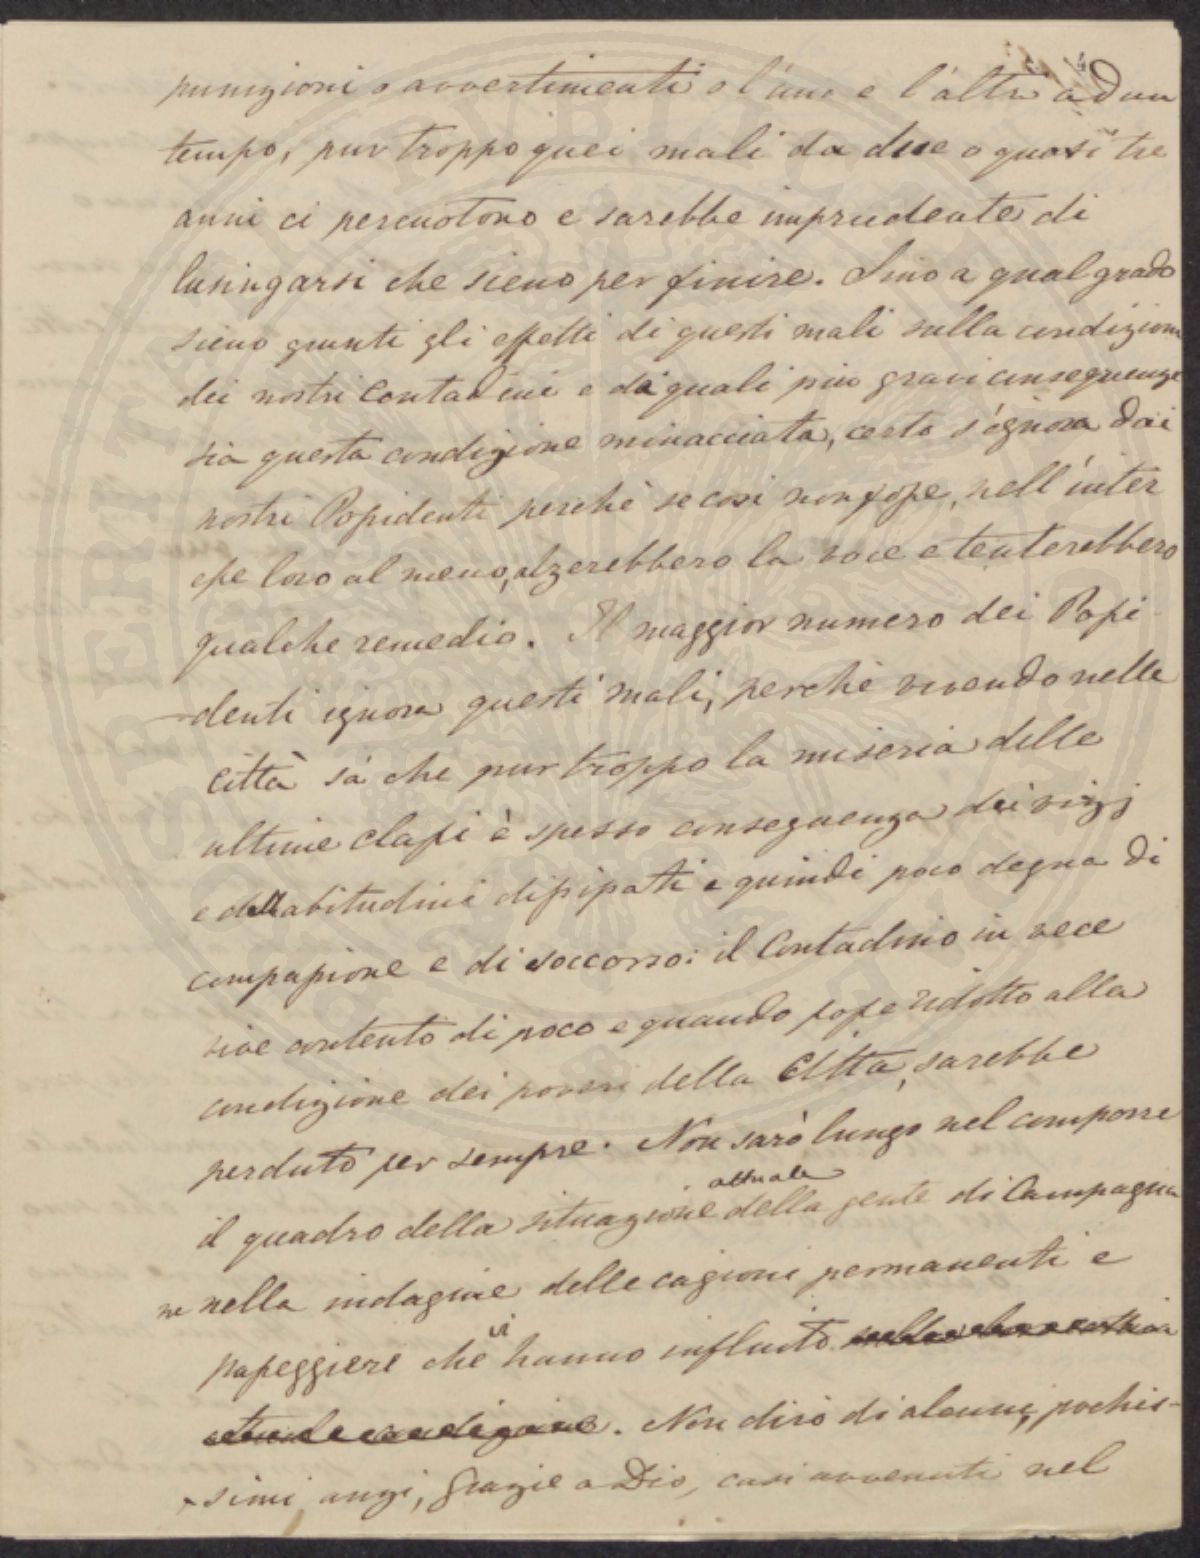 punizioni o avvertimenti o l'uno e l'altro ad un
tempo, pur troppo quei mali da due o quasi tre
anni ci percuotono e sarebbe imprudente di
lusingarsi che sieno per finire. Sino a qual grado
sieno giunti gli effetti di questi mali sulla condizione
dei nostri Contadini e da quali più gravi conseguenze
sia questa condizione minacciata, certo s'ignora dai
nostri Possidenti perchè se così non fosse, nell'inter
esse loro al meno, alzerebbero la voce e tenterebbero
qualche remedio. Il maggior numero dei Possi
denti ignora questi mali, perchè vivendo nelle
città sà che pur troppo la miseria delle
ultime classi è spesso conseguenza dei vizj
e dell'abitudini dissipati e quindi poco degna di
compassione e di soccorso: il Contadino in vece
vive contento di poco e quando fosse ridotto alla
condizione dei poveri della Città, sarebbe
perduto per sempre. Non sarò lungo nel comporre
il quadro della situazione attuale della gente di Campagna
ne nella indagine delle cagioni permanenti e
passeggiere che vi hanno influito
attuale condizione. Non dirò di alcuni, pochis-
simi anzi, grazie a Dio, casi avvenuti nel